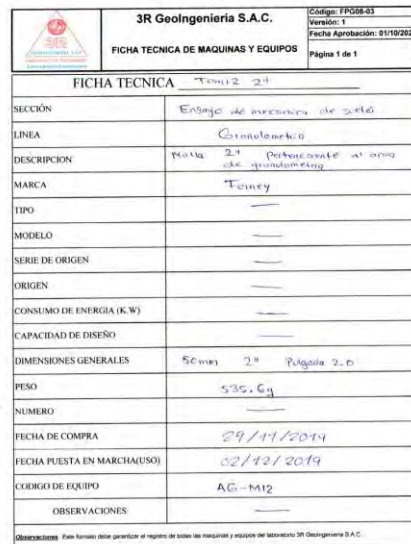 3R GeoIngenieria S.A.C.
FICHA TECNICA DE MAQUINAS Y EQUIPOS
Código: FPG08-03
Versión: 1
Fecha Aprobación: 01/10/202
Página 1 de 1
FICHA TECNICA Tamiz 2"
SECCIÓN Ensayo de mecanica de suelos
LINEA Granulometria
DESCRIPCION Malla 2" Perteneciente al area
de granulometria
MARCA Forney
TIPO —
MODELO —
SERIE DE ORIGEN —
ORIGEN —
CONSUMO DE ENERGIA (K.W) —
CAPACIDAD DE DISEÑO —
DIMENSIONES GENERALES 50mm 2" Pulgada 2.0
PESO 535.6g
NUMERO —
FECHA DE COMPRA 29/11/2019
FECHA PUESTA EN MARCHA(USO) 02/12/2019
CODIGO DE EQUIPO AG-M12
OBSERVACIONES —
Observaciones: Este formato debe garantizar el registro de todas las maquinas y equipos del laboratorio 3R GeoIngenieria S.A.C.